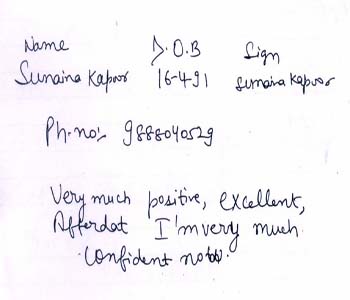 Name D.O.B Sign
Sunaina Kapoor 16-4-91 Sunaina Kapoor
Ph.no:- 9888040529
Very much positive, excellent,
I'm very much
Confident now.